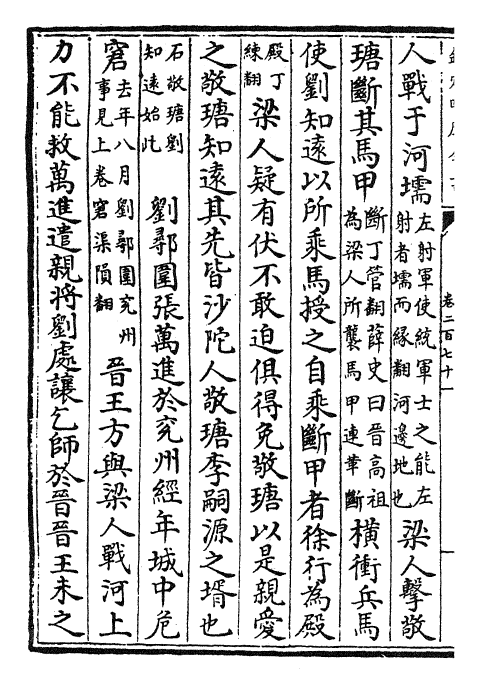 卷二百七十一
人戰于河壖左射軍使統軍士之能左射者壖而緣翻河邊地也梁人擊敬
瑭斷其馬甲斷丁管翻薛史曰晉高祖為梁人所襲馬甲連革斷橫衝兵馬
使劉知遠以所乘馬授之自乘斷甲者徐行為殿
殿丁練翻梁人疑有伏不敢迫俱得免敬瑭以是親愛
之敬瑭知遠其先皆沙陀人敬瑭李嗣源之壻也
石敬瑭劉知遠始此劉鄩圍張萬進於兖州經年城中危
窘去年八月劉鄩圍兖州事見上卷窘渠隕翻晉王方與梁人戰河上
力不能救萬進遣親將劉處讓乞師於晉晉王未之